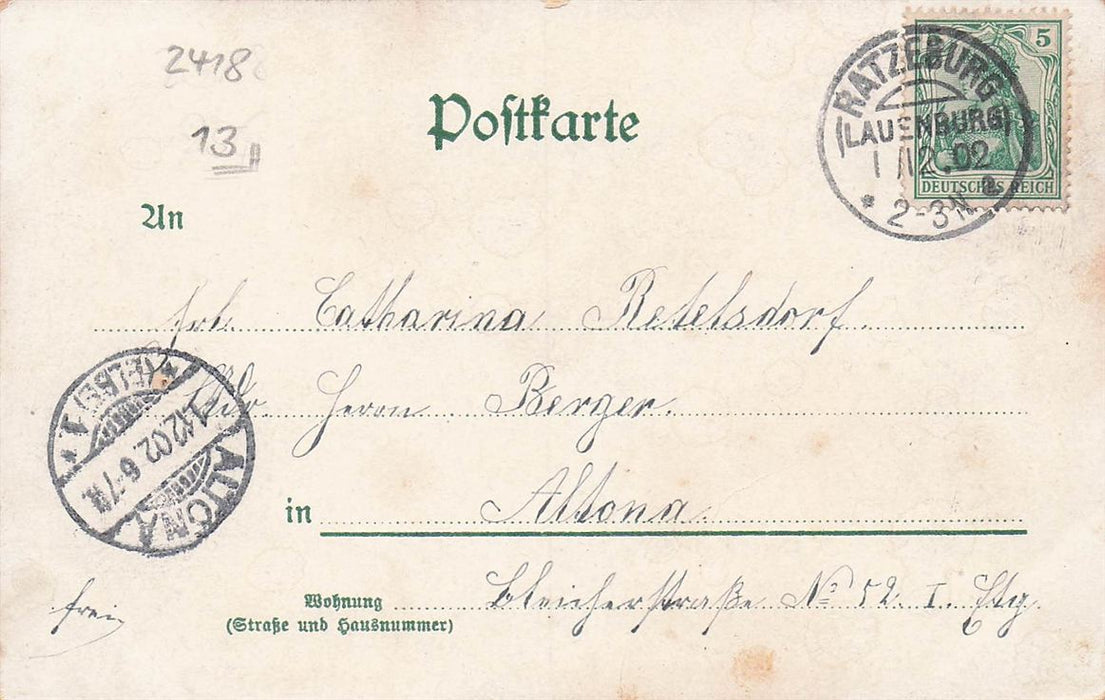 2418
13
Postkarte
5
DEUTSCHES REICH
RATZEBURG
(LAUENBURG)
1 12.02
* 2-3N
An
Frl. Catharina Retelsdorf.
Adr. Herrn Berger.
in Altona.
ALTONA
1.12.02. 6-7N.
* (ELBE) 1 *
frei
Wohnung Bleicherstraße No 52. I. Etg.
(Straße und Hausnummer)